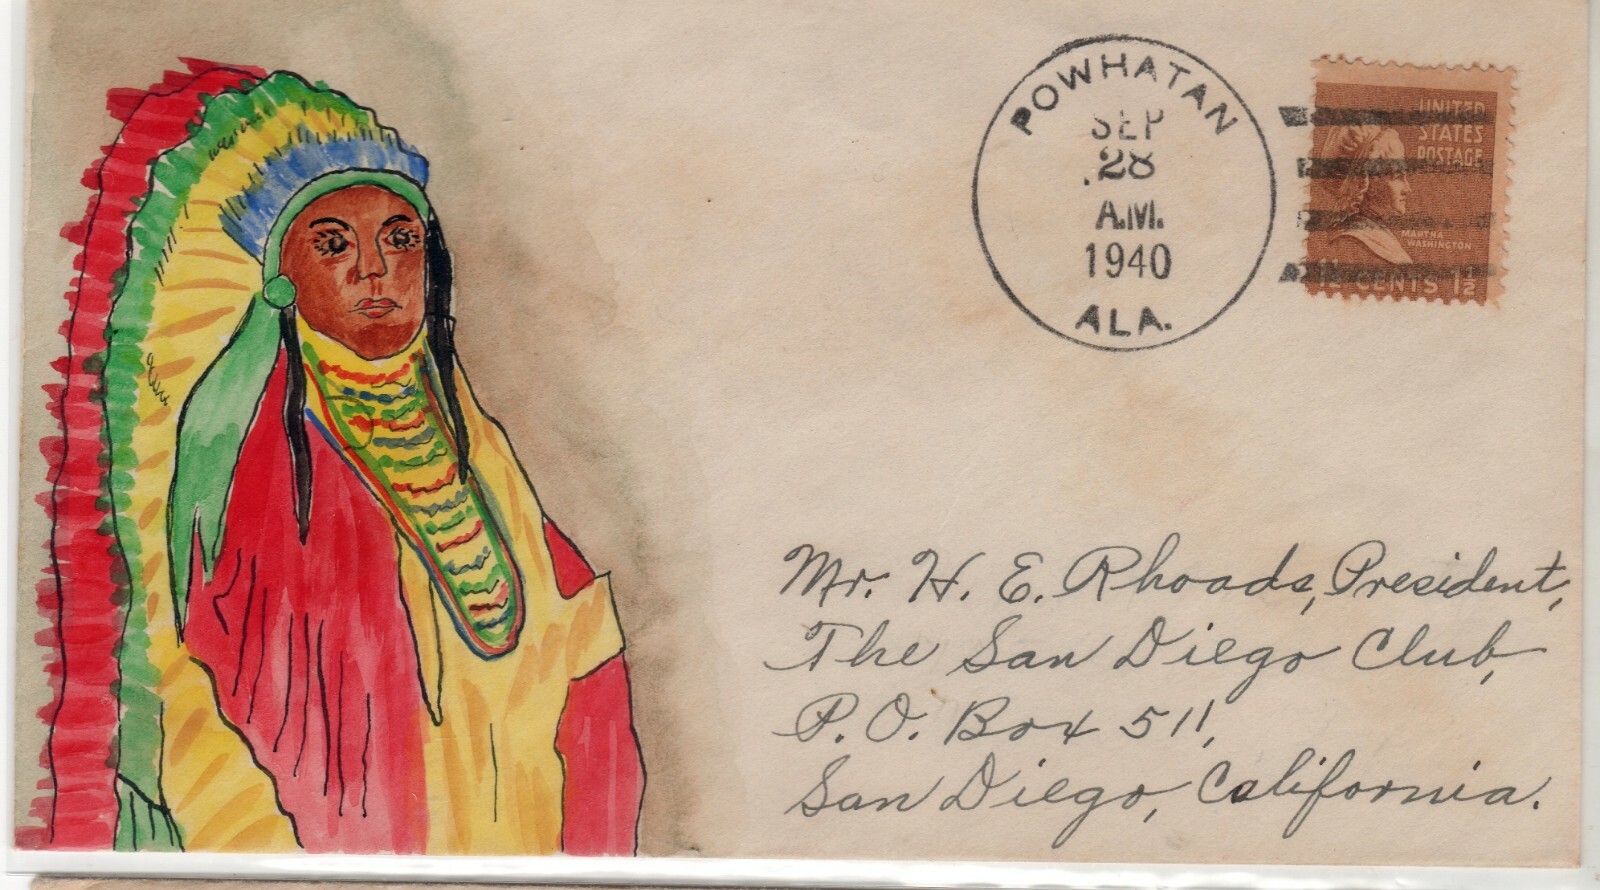 POWHATAN
SEP
28
A.M.
1940
ALA.
UNITED
STATES
POSTAGE
MARTHA
WASHINGTON
1½ CENTS 1½
Mr. H. E. Rhoads, President,
The San Diego Club,
P.O. Box 511,
San Diego, California.